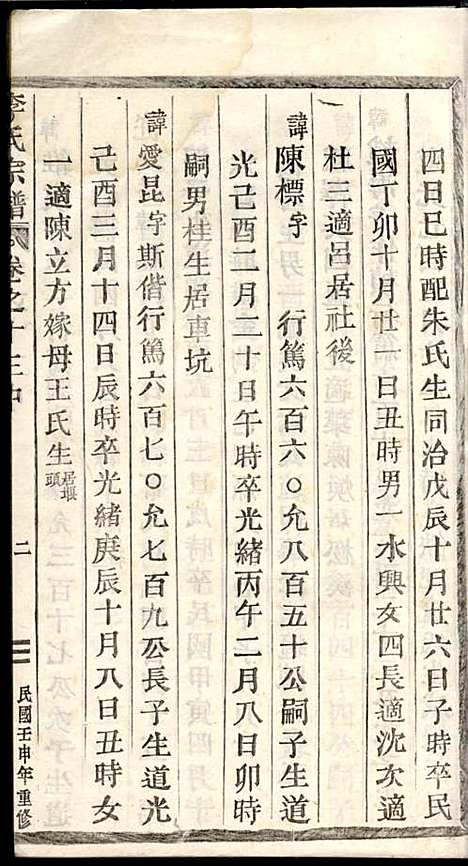 四日巳時配朱氏生同治戊辰十月廿六日子時卒民
國丁卯十月廿一日丑時男一水興女四長適沈次適
杜三適呂居社後
諱陳標字　行篤六百六○允八百五十公嗣子生道
光己酉二月二十日午時卒光緒丙午二月八日卯時
嗣男桂生居車坑
諱愛昆字斯偕行篤六百七○允七百九公長子生道光
己酉三月十四日辰時卒光緒庚辰十月八日丑時女
一適陳立方嫁母王氏生居堰頭
李氏宗譜 卷之十三中 二 民國壬申年重修